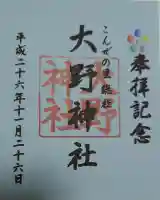 奉拝記念
こんぜの里 総社
大野神社
大野神社
平成二十六年十一月二十六日